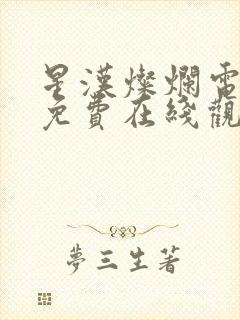 星漢燦爛電
免費在綫觀
夢三生著